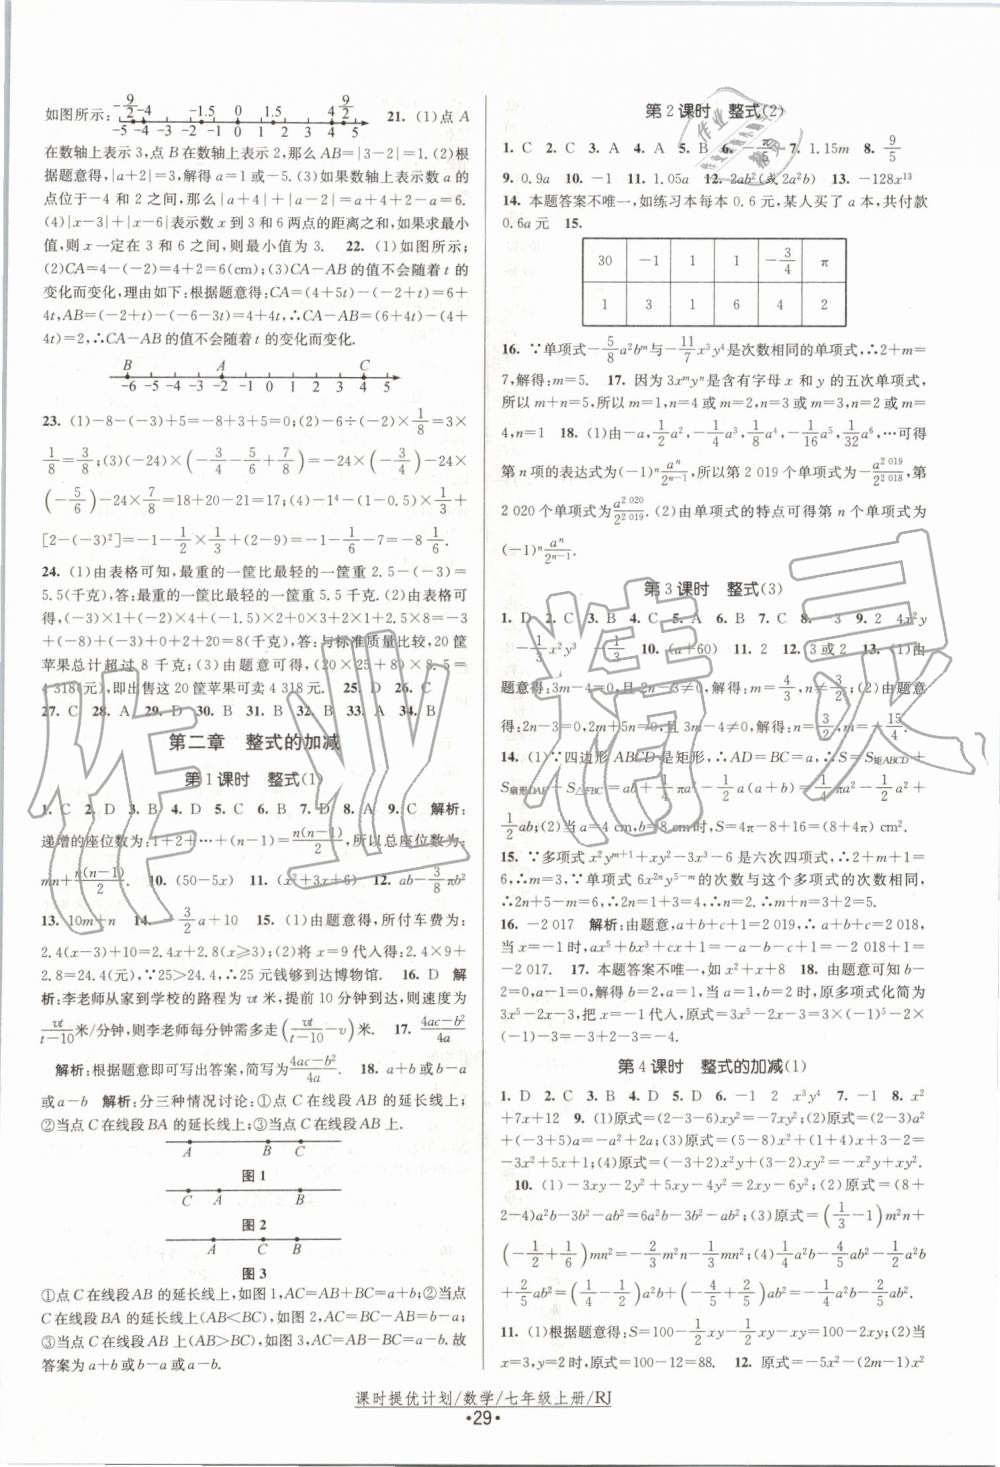 如图所示: -9/2 -4 -1.5 0 1.5 4 9/2 -5 -4 -3 -2 -1 0 1 2 3 4 5 21. (1)点 A
在数轴上表示 3,点 B 在数轴上表示 2,那么 AB=|3-2|=1.(2)根
据题意得,|a+2|=3,解得 a=1 或-5.(3)如果数轴上表示数 a 的
点位于-4 和 2 之间,那么|a+4|+|a-2|=a+4+2-a=6.
(4)|x-3|+|x-6|表示数 x 到 3 和 6 两点的距离之和,如果求最小
值,则 x 一定在 3 和 6 之间,则最小值为 3. 22. (1)如图所示;
(2)CA=4-(-2)=4+2=6(cm);(3)CA-AB 的值不会随着 t 的
变化而变化,理由如下:根据题意得:CA=(4+5t)-(-2+t)=6+
4t,AB=(-2+t)-(-6-3t)=4+4t,∴CA-AB=(6+4t)-(4+
4t)=2,∴CA-AB 的值不会随着 t 的变化而变化.
B A C
-6 -5 -4 -3 -2 -1 0 1 2 3 4 5
23. (1)-8-(-3)+5=-8+3+5=0;(2)-6÷(-2)×1/8=3×
1/8=3/8;(3)(-24)×(-3/4-5/6+7/8)=-24×(-3/4)-24×
(-5/6)-24×7/8=18+20-21=17;(4)-1⁴-(1-0.5)×1/3+
[2-(-3)²]=-1-1/2×1/3+(2-9)=-1-1/6-7=-8 1/6.
24. (1)由表格可知,最重的一筐比最轻的一筐重 2.5-(-3)=
5.5(千克),答:最重的一筐比最轻的一筐重 5.5 千克.(2)由表格可
得,(-3)×1+(-2)×4+(-1.5)×2+0×3+2×1+2.5×8=-3
+(-8)+(-3)+0+2+20=8(千克),答:与标准质量比较,20 筐
苹果总计超过 8 千克;(3)由题意可得,(20×25+8)×8.5=
4 318(元),即出售这 20 筐苹果可卖 4 318 元. 25. D 26. C
27. C 28. A 29. D 30. B 31. B 32. B 33. A 34. B
第二章 整式的加减
第 1 课时 整式(1)
1. C 2. D 3. B 4. D 5. C 6. B 7. D 8. A 9. C 解析:
递增的座位数为:1+2+…+(n-1)=n(n-1)/2,所以总座位数为:
mn+n(n-1)/2. 10. (50-5x) 11. (x²+3x+6) 12. ab-3/8πb²
13. 10m+n 14. 3/2a+10 15. (1)由题意得,所付车费为:
2.4(x-3)+10=2.4x+2.8(x≥3);(2)将 x=9 代入得:2.4×9+
2.8=24.4(元),∵25>24.4,∴25 元钱够到达博物馆. 16. D 解
析:李老师从家到学校的路程为 vt 米,提前 10 分钟到达,则速度为
vt/(t-10)米/分钟,则李老师每分钟需多走(vt/(t-10)-v)米. 17. (4ac-b²)/4a
解析:根据题意即可写出答案,简写为(4ac-b²)/4a. 18. a+b 或 a-b
或 a-b 解析:分三种情况讨论:①点 C 在线段 AB 的延长线上;
②当点 C 在线段 BA 的延长线上;③当点 C 在线段 AB 上.
A B C
图 1
C A B
图 2
A C B
图 3
①点 C 在线段 AB 的延长线上,如图 1,AC=AB+BC=a+b;②当点
C 在线段 BA 的延长线上(AB<BC),如图 2,AC=BC-AB=b-a;
③当点 C 在线段 AB 上(AB>BC),如图 3,AC=AB-BC=a-b.故
答案为 a+b 或 b-a 或 a-b.
第 2 课时 整式(2)
1. C 2. C 3. A 4. A 5. B 6. -π/5 7. 1.15m 8. 9/5
9. 0.9a 10. -1 11. 1.05a 12. 2ab²(或 2a²b) 13. -128x¹³
14. 本题答案不唯一,如练习本每本 0.6 元,某人买了 a 本,共付款
0.6a 元 15.
30 -1 1 1 -3/4 π
1 3 1 6 4 2
16. ∵单项式-5/8a²bᵐ与-11/7x³y⁴是次数相同的单项式,∴2+m=
7,解得:m=5. 17. 因为 3xᵐyⁿ是含有字母 x 和 y 的五次单项式,
所以 m+n=5,所以 m=1,n=4 或 m=2,n=3 或 m=3,n=2 或 m=
4,n=1 18. (1)由-a,1/2a²,-1/4a³,1/8a⁴,-1/16a⁵,1/32a⁶,…可得
第 n 项的表达式为(-1)ⁿaⁿ/2ⁿ⁻¹,所以第 2 019 个单项式为-a²⁰¹⁹/2²⁰¹⁸.第
2 020 个单项式为a²⁰²⁰/2²⁰¹⁹.(2)由单项式的特点可得第 n 个单项式为
(-1)ⁿaⁿ/2ⁿ⁻¹.
第 3 课时 整式(3)
1. D 2. C 3. B 4. C 5. A 6. B 7. C 8. -3 9. 2 4x²y
-1/3x²y³ -1/3 10. (a+60) 11. 2 12. 3 或 2 13. (1)由
题意得:3m-4=0,且 2n-3≠0,解得:m=4/3,n≠3/2;(2)由题意
得:2n-3=0,2m+5n=0,且 3m-4≠0,解得:n=3/2,m=-15/4.
14. (1)∵四边形 ABCD 是矩形,∴AD=BC=a,∴S=S矩ABCD+
S扇形DAE-S△FBC=ab+1/4πa²-1/2a(a+b)=1/4πa²-1/2a²+
1/2ab;(2)当 a=4 cm,b=8 cm 时,S=4π-8+16=(8+4π) cm².
15. ∵多项式 x²yᵐ⁺¹+xy²-3x³-6 是六次四项式,∴2+m+1=
6,∴m=3,∵单项式 6x²ⁿy⁵⁻ᵐ的次数与这个多项式的次数相同,
∴2n+5-m=6,∴2n=1+3=4,∴n=2.∴m+n=3+2=5.
16. -2 017 解析:由题意,a+b+c+1=2 019,∴a+b+c=2 018,
当 x=-1 时,ax⁵+bx³+cx+1=-a-b-c+1=-2 018+1=
-2 017. 17. 本题答案不唯一,如 x²+x+8 18. 由题意可知 b-
2=0,a-1=0,解得 b=2,a=1,当 a=1,b=2 时,原多项式化简为
3x⁵-2x-3,把 x=-1 代入,原式=3x⁵-2x-3=3×(-1)⁵-2×
(-1)-3=-3+2-3=-4.
第 4 课时 整式的加减(1)
1. D 2. C 3. B 4. D 5. D 6. -1 2 x³y⁴ 7. -1 8. x²
+7x+12 9. (1)原式=(2-3-6)xy²=-7xy²;(2)原式=(2-3)a²
+(-3+5)a=-a²+2a;(3)原式=(5-8)x²+(4+1)x+3-2=
-3x²+5x+1;(4)原式=(-3+2)x²y+(3-2)xy²=-x²y+xy².
10. (1)-3xy-2y²+5xy-4y²=2xy-6y²;(2)原式=(8+
2-4)a²b-3b²-ab²=6a²b-3b²-ab²;(3)原式=(1/3-1)m²n+
(-1/2+1/6)mn²=-2/3m²n-1/3mn²;(4)1/4a²b-2/5ab²-1/2a²b
+2/5ab²=(1/4-1/2)a²b+(-4/5+2/5)ab²=-1/4a²b-2/5ab².
11. (1)根据题意得:S=100-1/2xy-1/2xy=100-2xy;(2)当
x=3,y=2 时,原式=100-12=88. 12. 原式=-5x²-(2m-1)x²
课时提优计划/数学/七年级上册/RJ
·29·
作业精灵
作业精灵